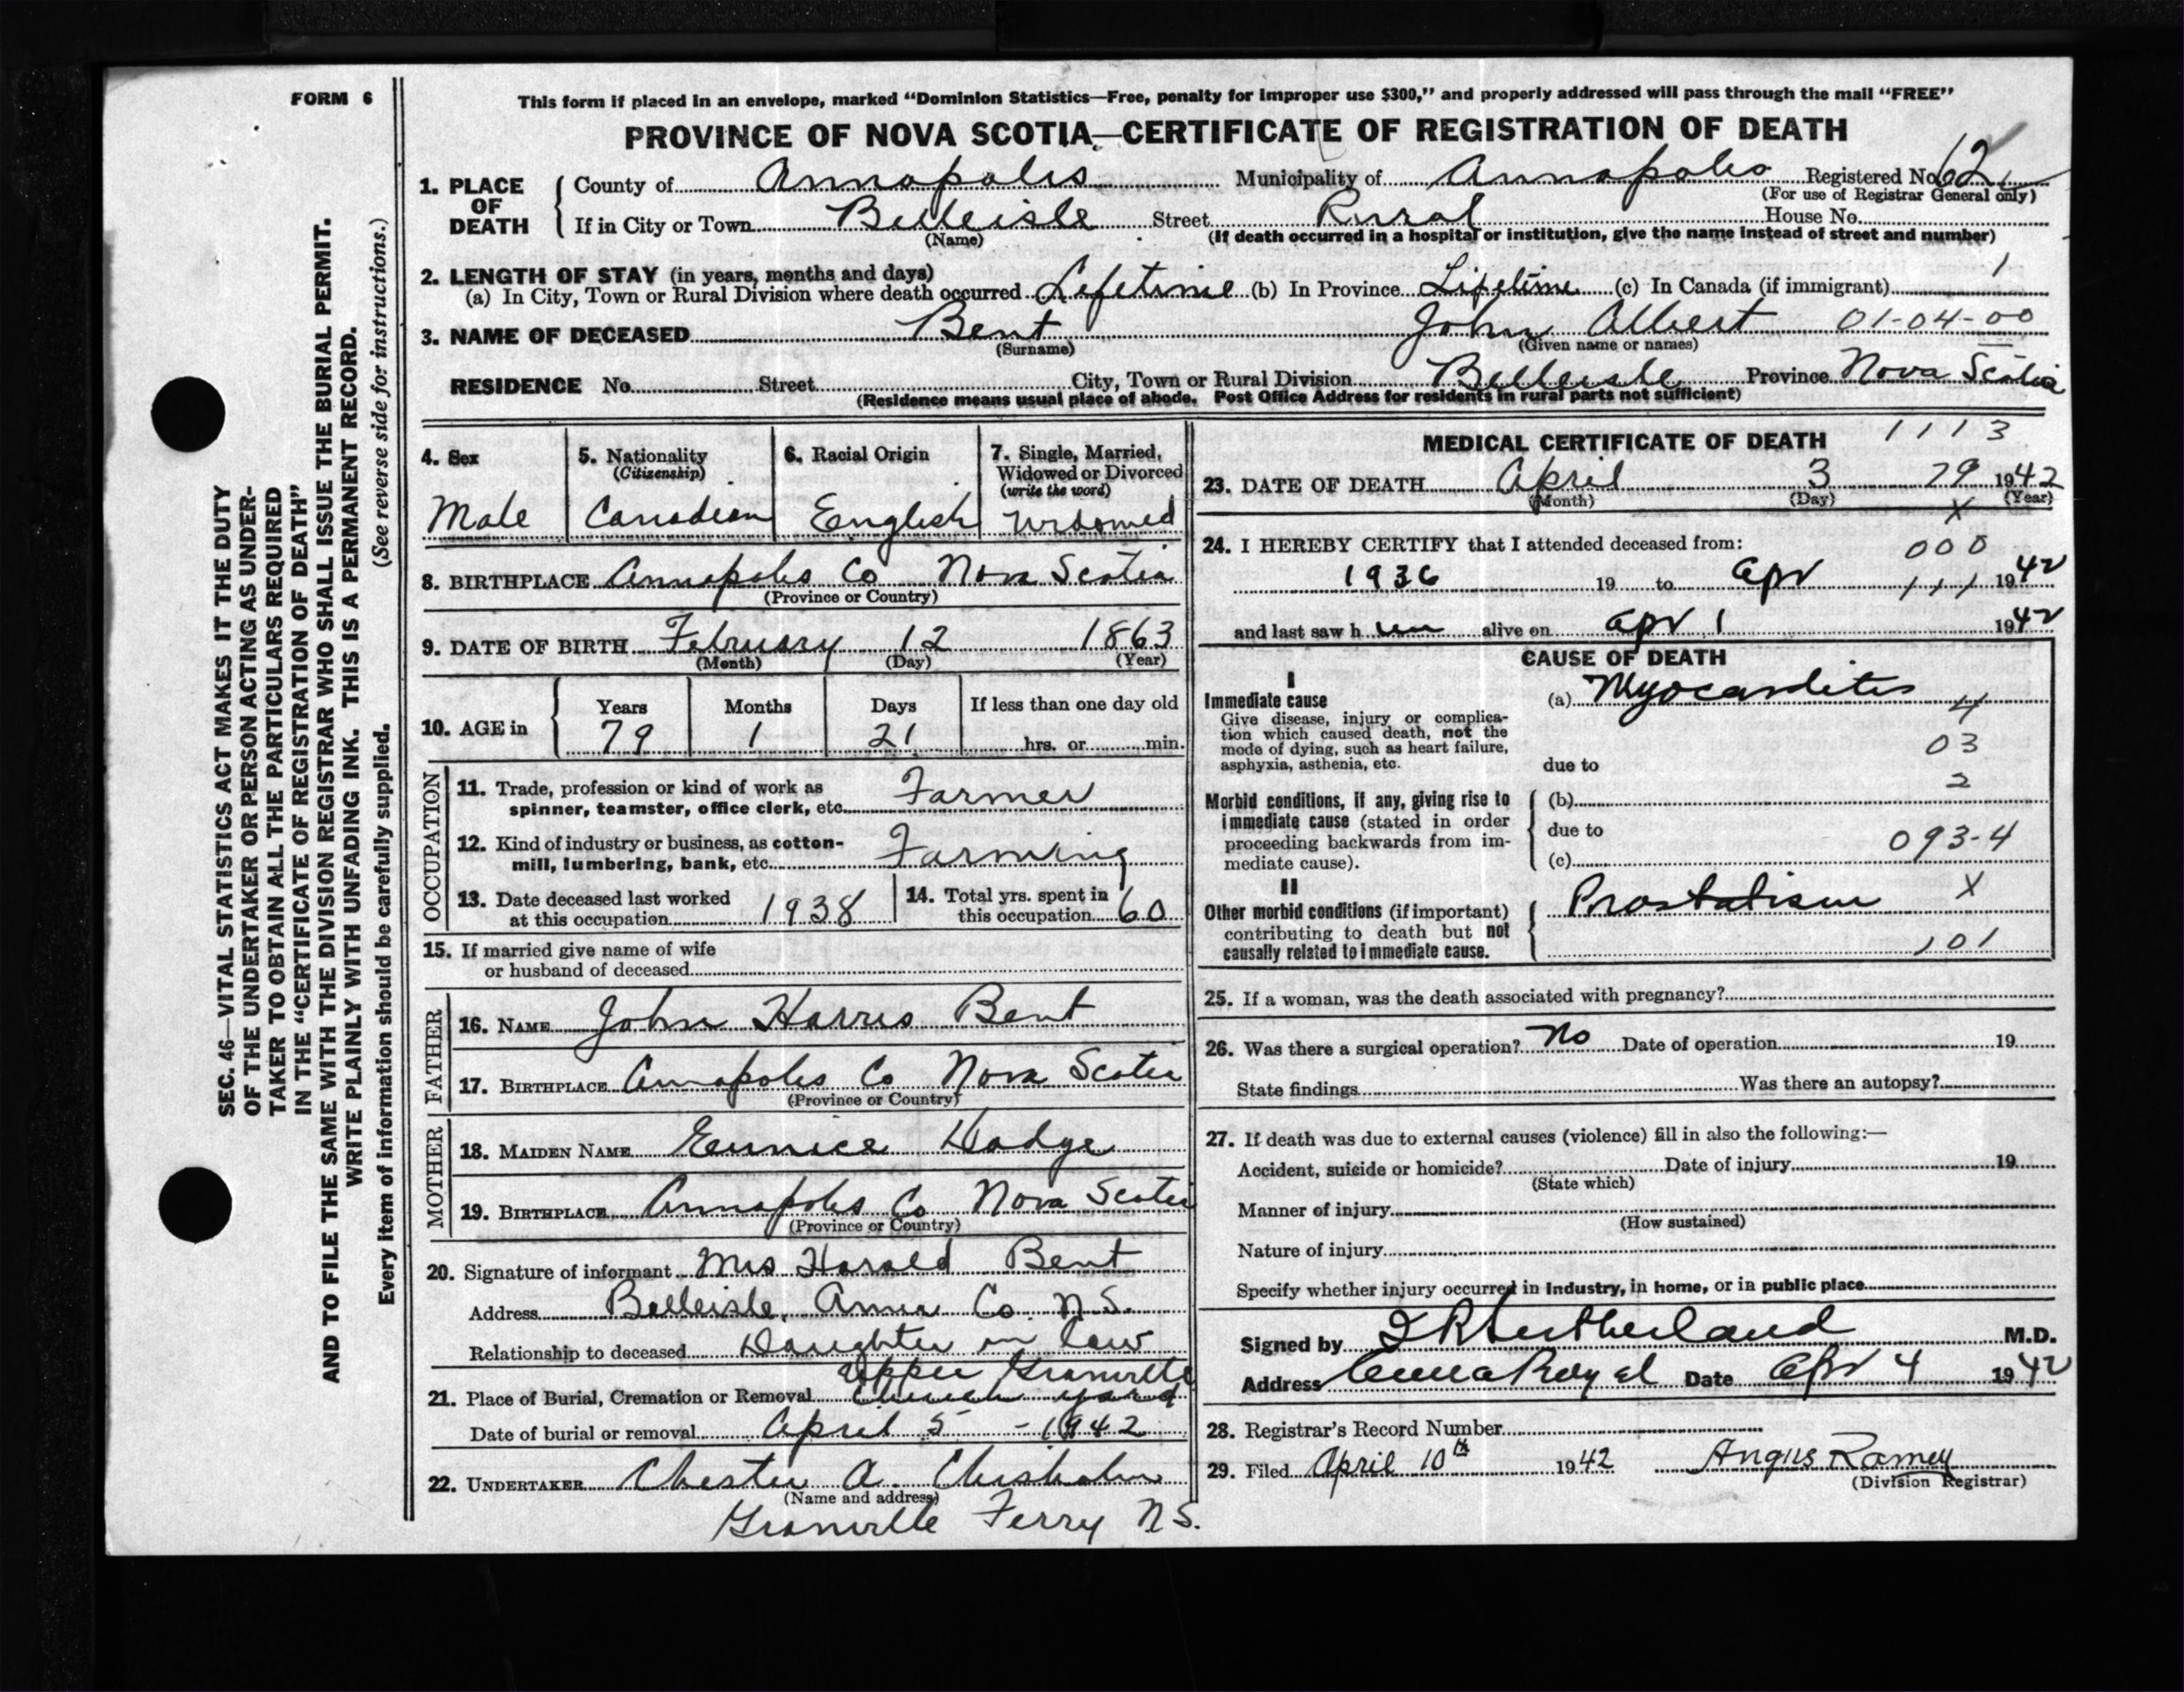 FORM 6
This form if placed in an envelope, marked "Dominion Statistics—Free, penalty for improper use $300," and properly addressed will pass through the mail "FREE"
PROVINCE OF NOVA SCOTIA—CERTIFICATE OF REGISTRATION OF DEATH
1. PLACE OF DEATH
County of Annapolis Municipality of Annapolis Registered No. 62
(For use of Registrar General only)
If in City or Town Belleisle Street Rural House No.
(Name) (If death occurred in a hospital or institution, give the name instead of street and number)
2. LENGTH OF STAY (in years, months and days) 1
(a) In City, Town or Rural Division where death occurred Lifetime (b) In Province Lifetime (c) In Canada (if immigrant)
3. NAME OF DECEASED Bent John Albert 01-04-00
(Surname) (Given name or names)
RESIDENCE No. Street City, Town or Rural Division Belleisle Province Nova Scotia
(Residence means usual place of abode. Post Office Address for residents in rural parts not sufficient)
4. Sex
Male
5. Nationality
(Citizenship)
Canadian
6. Racial Origin
English
7. Single, Married, Widowed or Divorced
(write the word)
Widowed
8. BIRTHPLACE Annapolis Co Nova Scotia
(Province or Country)
9. DATE OF BIRTH February 12 1863
(Month) (Day) (Year)
10. AGE in
Years Months Days If less than one day old
79 1 21 hrs. or min.
OCCUPATION
11. Trade, profession or kind of work as
spinner, teamster, office clerk, etc. Farmer
12. Kind of industry or business, as cotton-
mill, lumbering, bank, etc. Farming
13. Date deceased last worked
at this occupation 1938
14. Total yrs. spent in
this occupation 60
15. If married give name of wife
or husband of deceased
FATHER
16. NAME John Harris Bent
17. BIRTHPLACE Annapolis Co Nova Scotia
(Province or Country)
MOTHER
18. MAIDEN NAME Eunice Dodge
19. BIRTHPLACE Annapolis Co Nova Scotia
(Province or Country)
20. Signature of informant Mrs Harold Bent
Address Belleisle, Anna Co. N.S.
Relationship to deceased Daughter in law
Upper Granville
21. Place of Burial, Cremation or Removal Church yard
Date of burial or removal April 5 - 1942
22. UNDERTAKER Chester A. Chisholm
(Name and address)
Granville Ferry N S.
MEDICAL CERTIFICATE OF DEATH 1113
23. DATE OF DEATH April 3 79 1942
(Month) (Day) (Year)
X
24. I HEREBY CERTIFY that I attended deceased from: 000
1936 19 to Apr 111 1942
and last saw h im alive on Apr 1 1942
CAUSE OF DEATH
I
Immediate cause
Give disease, injury or complica-
tion which caused death, not the
mode of dying, such as heart failure,
asphyxia, asthenia, etc.
(a) Myocarditis 4
03
due to
2
Morbid conditions, if any, giving rise to
immediate cause (stated in order
proceeding backwards from im-
mediate cause).
(b)
due to
093-4
(c)
II
Other morbid conditions (if important)
contributing to death but not
causally related to immediate cause.
Prostatism X
101
25. If a woman, was the death associated with pregnancy?
26. Was there a surgical operation? No Date of operation 19
State findings Was there an autopsy?
27. If death was due to external causes (violence) fill in also the following:—
Accident, suicide or homicide? Date of injury 19
(State which)
Manner of injury
(How sustained)
Nature of injury
Specify whether injury occurred in industry, in home, or in public place
Signed by Sutherland M.D.
Address Anna Royal Date Apr 4 1942
28. Registrar's Record Number
29. Filed April 10th 1942 Angus Ramey
(Division Registrar)
SEC. 46—VITAL STATISTICS ACT MAKES IT THE DUTY
OF THE UNDERTAKER OR PERSON ACTING AS UNDER-
TAKER TO OBTAIN ALL THE PARTICULARS REQUIRED
IN THE "CERTIFICATE OF REGISTRATION OF DEATH"
AND TO FILE THE SAME WITH THE DIVISION REGISTRAR WHO SHALL ISSUE THE BURIAL PERMIT.
WRITE PLAINLY WITH UNFADING INK. THIS IS A PERMANENT RECORD.
Every item of information should be carefully supplied. (See reverse side for instructions.)